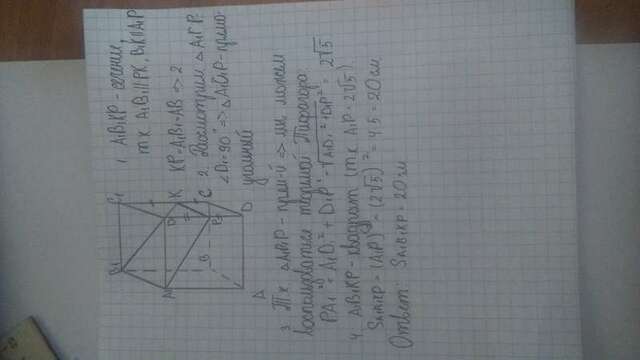 1. A₁B₁KP - сечение,
т к A₁B₁||PK, B₁K||A₁P
KP=A₁B₁=AB =>2
2. Рассмотрим △A₁
∠D₁=90° => △A₁D₁P - прямо-
угольный
B₁
C₁
A₁
K
P
B
C
A
D
3. Т к △A₁D₁P - прям-й => мы можем
воспользоваться теоремой Пифагора:
PA₁² = A₁D₁² + D₁P² = √A₁D₁² + D₁P² = 2√5
4. A₁B₁KP - квадрат (т к A₁P = 2√5)
SA₁B₁KP = (A₁P)² = (2√5)² = 4·5 = 20 см
Ответ: SA₁B₁KP = 20 см